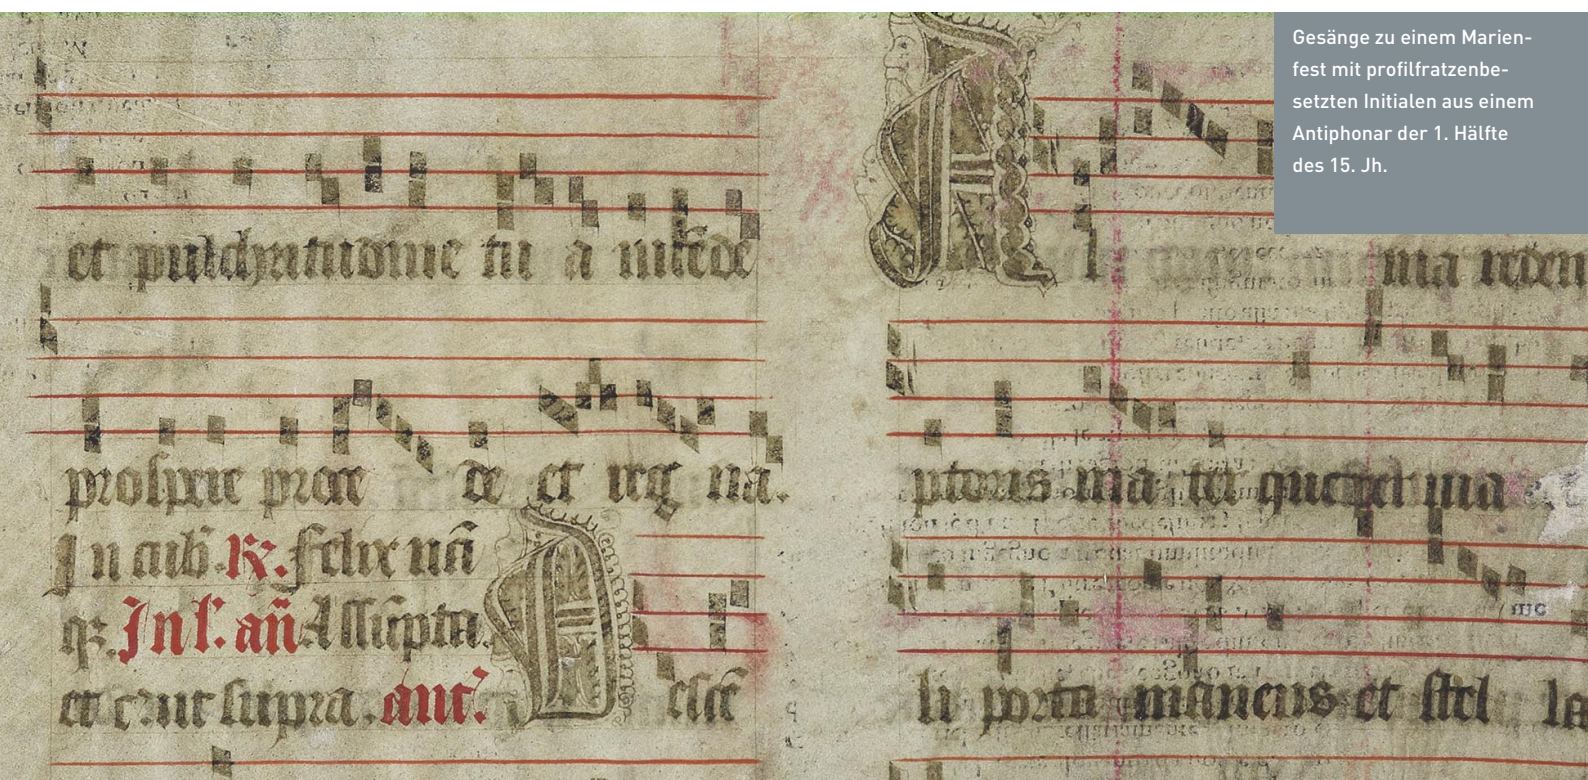 Gesänge zu einem Marien-
fest mit profilfratzenbe-
setzten Initialen aus einem
Antiphonar der 1. Hälfte
des 15. Jh.
et pulchritudine tu a intēde
prospere proce de et reg na.
felix
qz. In l'. an̄ Assūpta.
et c. ut supra. ant.
Al ma redem
ptoris ma ter que per uia ce
li porta manens et stel la